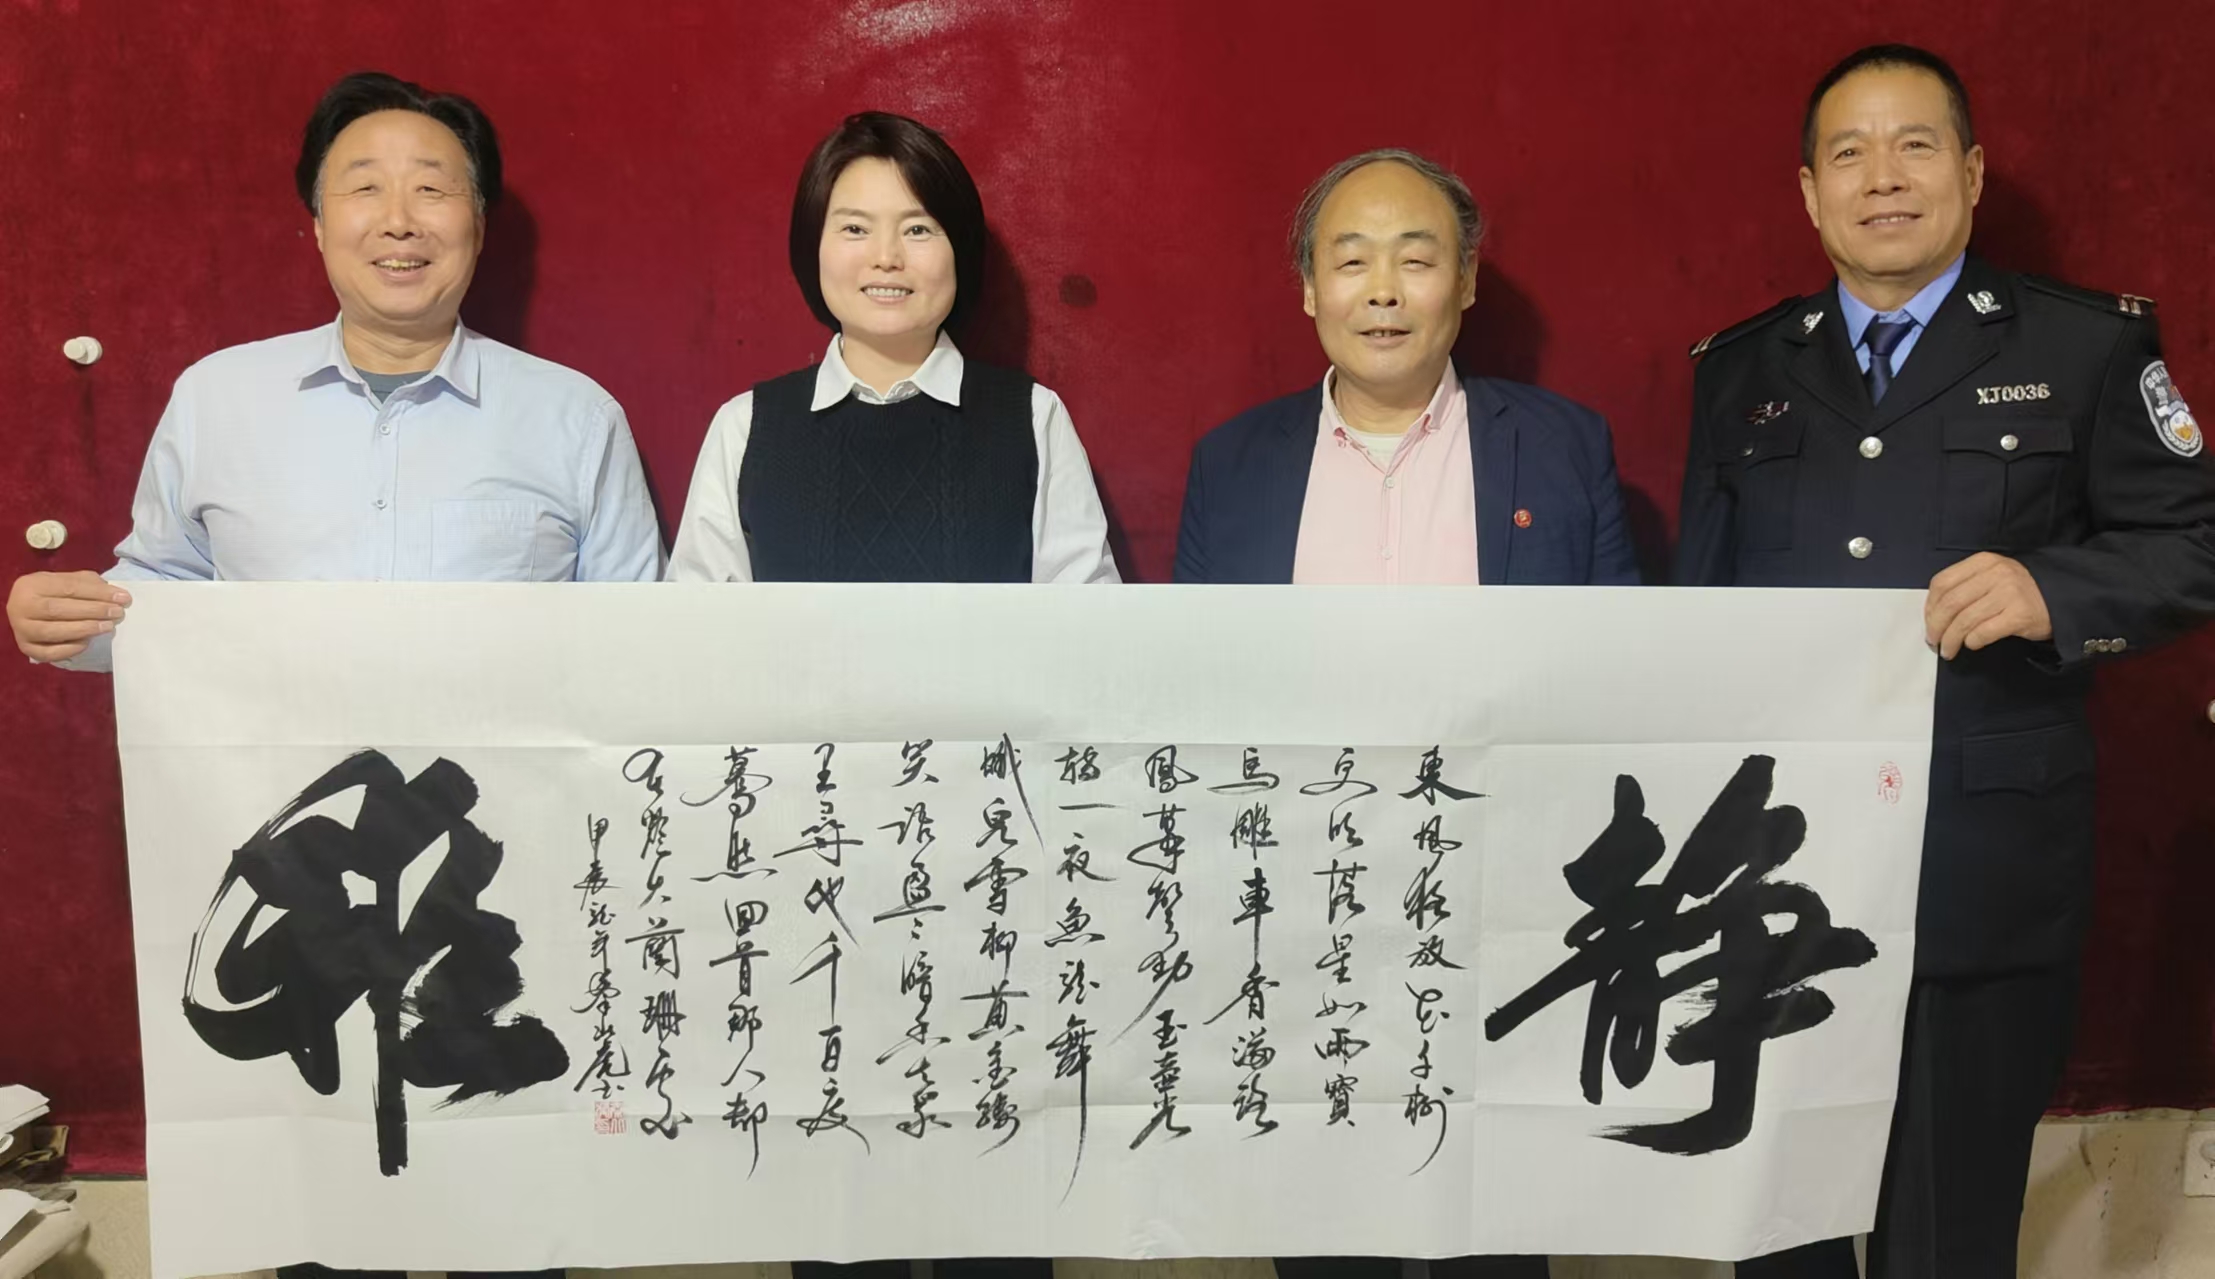 XJ0036
静
東風夜放花千樹
更吹落星如雨寶
馬雕車香滿路
鳳簫聲動玉壺光
轉一夜魚龍舞
蛾兒雪柳黄金縷
笑語盈々暗香去衆
里尋他千百度
驀然回首那人却
在燈火蘭珊處
甲辰龍年山虎书
雅